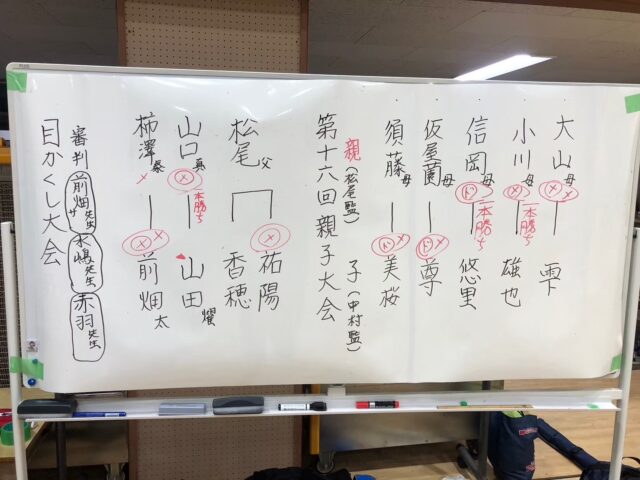 大山母 メ 雫
小川母 メ 一本勝ち 雄也
信岡母 ド 一本勝ち 悠里
仮屋薗母 ド メ 尊
須藤母 ド メ 美桜
親(松尾監) 子(中村監)
第十六回親子大会
松尾父 メ 祐陽 香穂
山口真 メ 一本勝ち 山田耀
柿澤泰 メ メ メ 前畑太
審判 前畑先生 水嶋先生 赤羽先生
目かくし大会